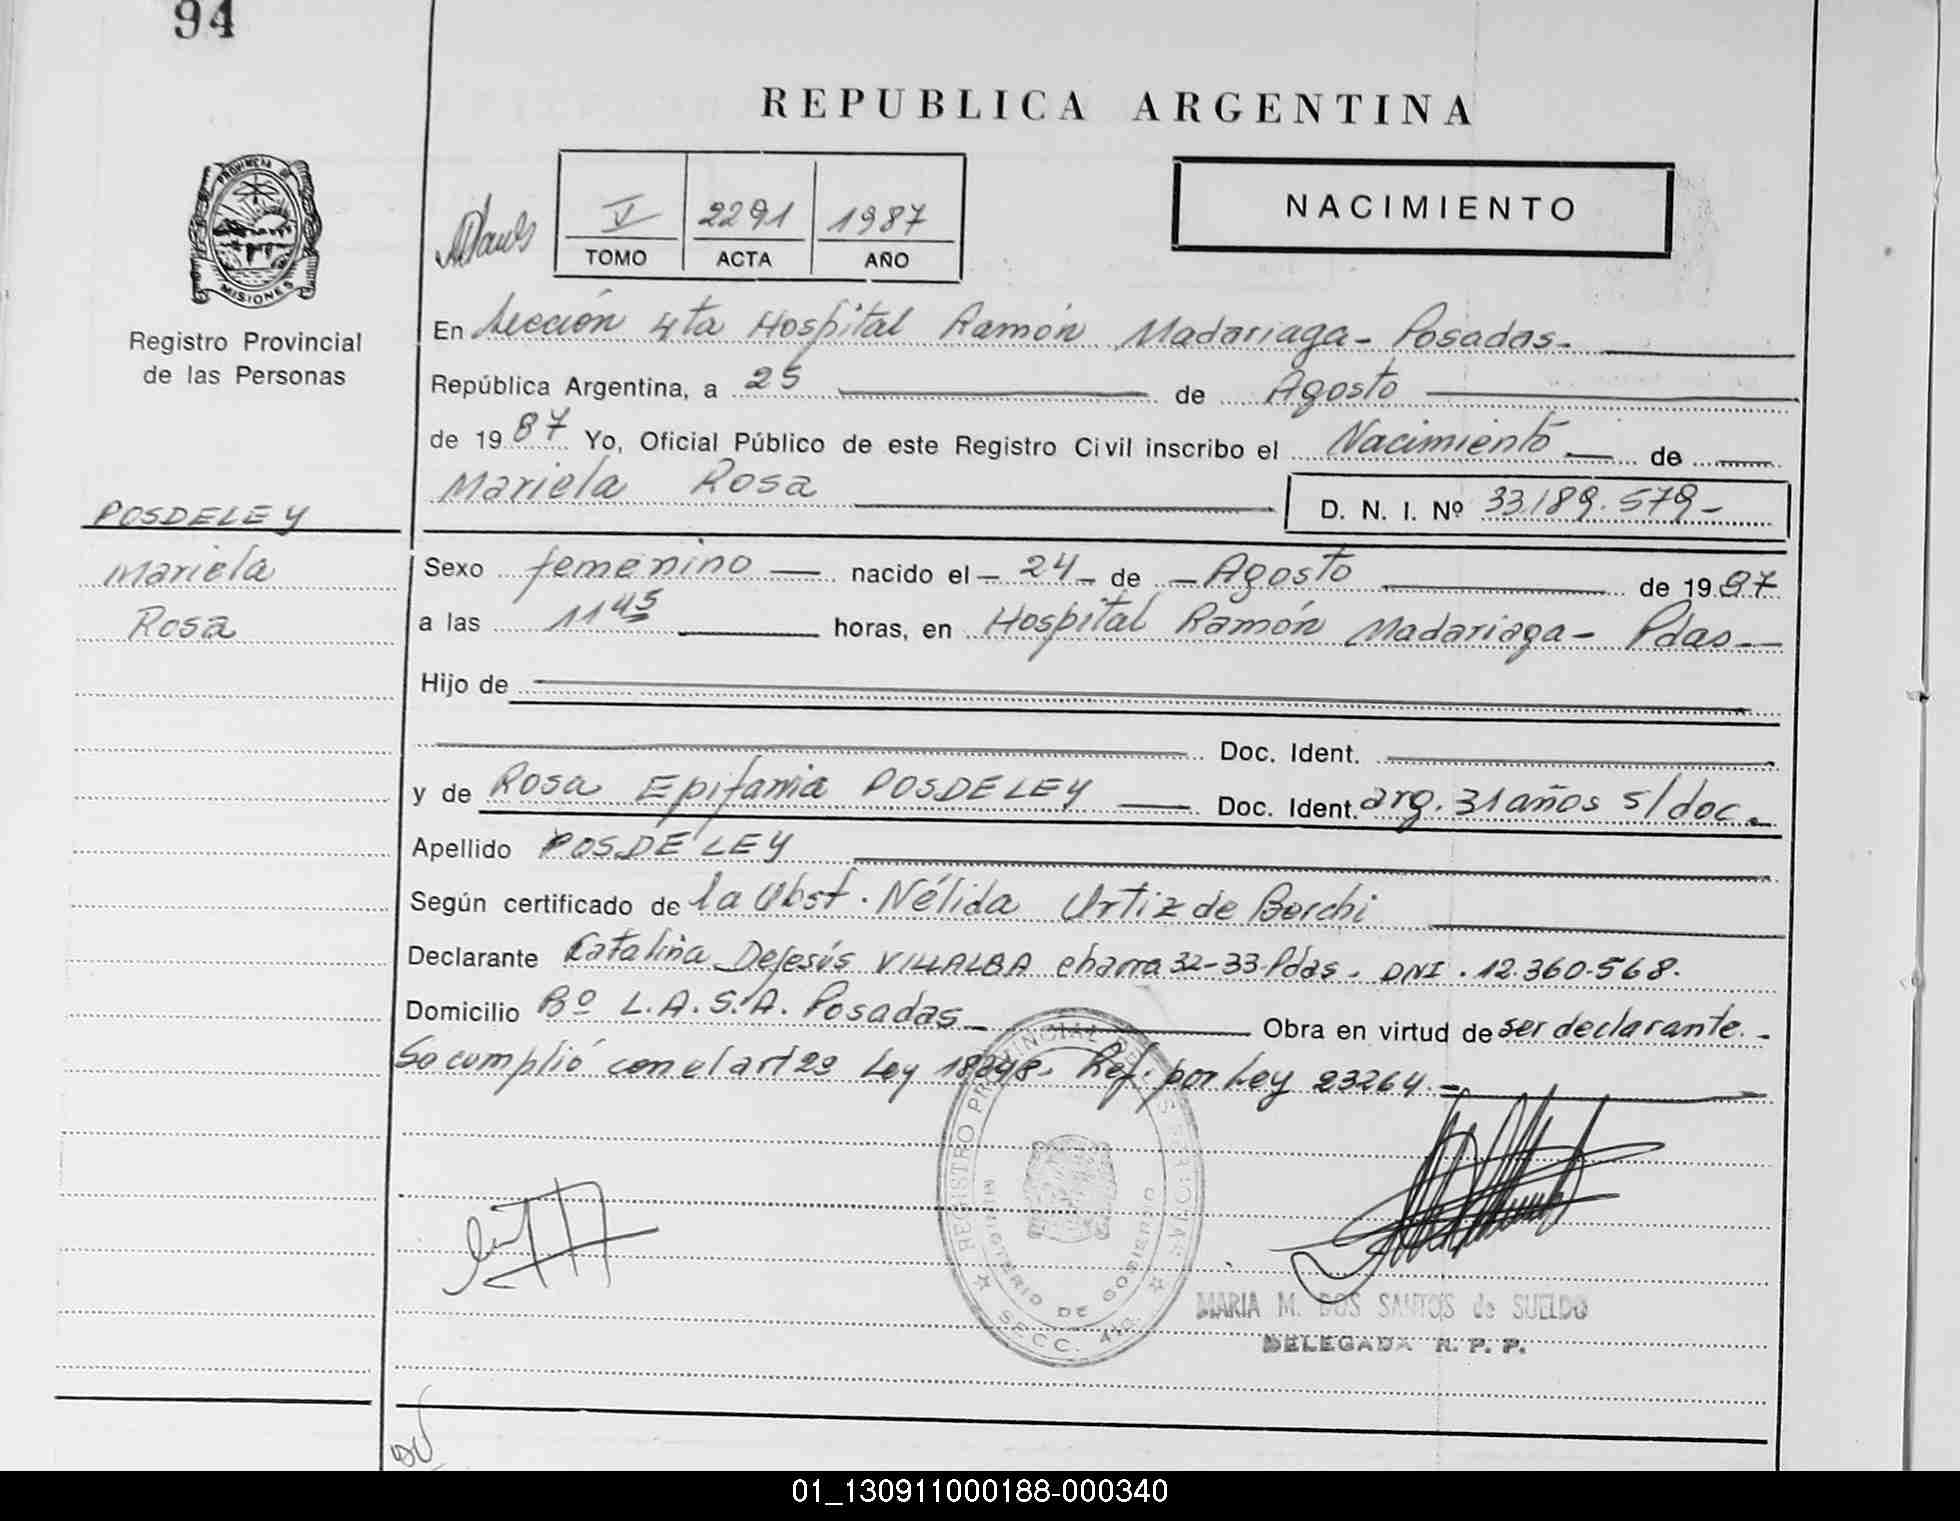 94
REPUBLICA ARGENTINA
PROVINCIA DE
MISIONES
Registro Provincial
de las Personas
V 2291 1987
TOMO ACTA AÑO
NACIMIENTO
En Sección 4ta Hospital Ramón Madariaga - Posadas -
República Argentina, a 25 de Agosto
de 1987 Yo, Oficial Público de este Registro Civil inscribo el Nacimiento de
Mariela Rosa D. N. I. Nº 33.189.579-
POSDELEY
Mariela
Rosa
Sexo femenino nacido el - 24 - de - Agosto de 1987
a las 11 45 horas, en Hospital Ramón Madariaga - Pdas -
Hijo de
Doc. Ident.
y de Rosa Epifania POSDELEY Doc. Ident. arg. 31 años s/doc.
Apellido POSDELEY
Según certificado de la Obst. Nélida Ortiz de Borchi
Declarante Catalina Dejesús VILLALBA chacra 32-33-Pdas. DNI. 12.360.568.
Domicilio Bº L.A.S.A. Posadas - Obra en virtud de ser declarante. -
Se cumplió con el art 29 Ley 18248. Ref. por Ley 23264. -
REGISTRO PROVINCIAL DE LAS PERSONAS
MINISTERIO DE GOBIERNO
SECC. 4ta.
MARIA M. DOS SANTOS de SUELDO
DELEGADA R. P. P.
01_130911000188-000340